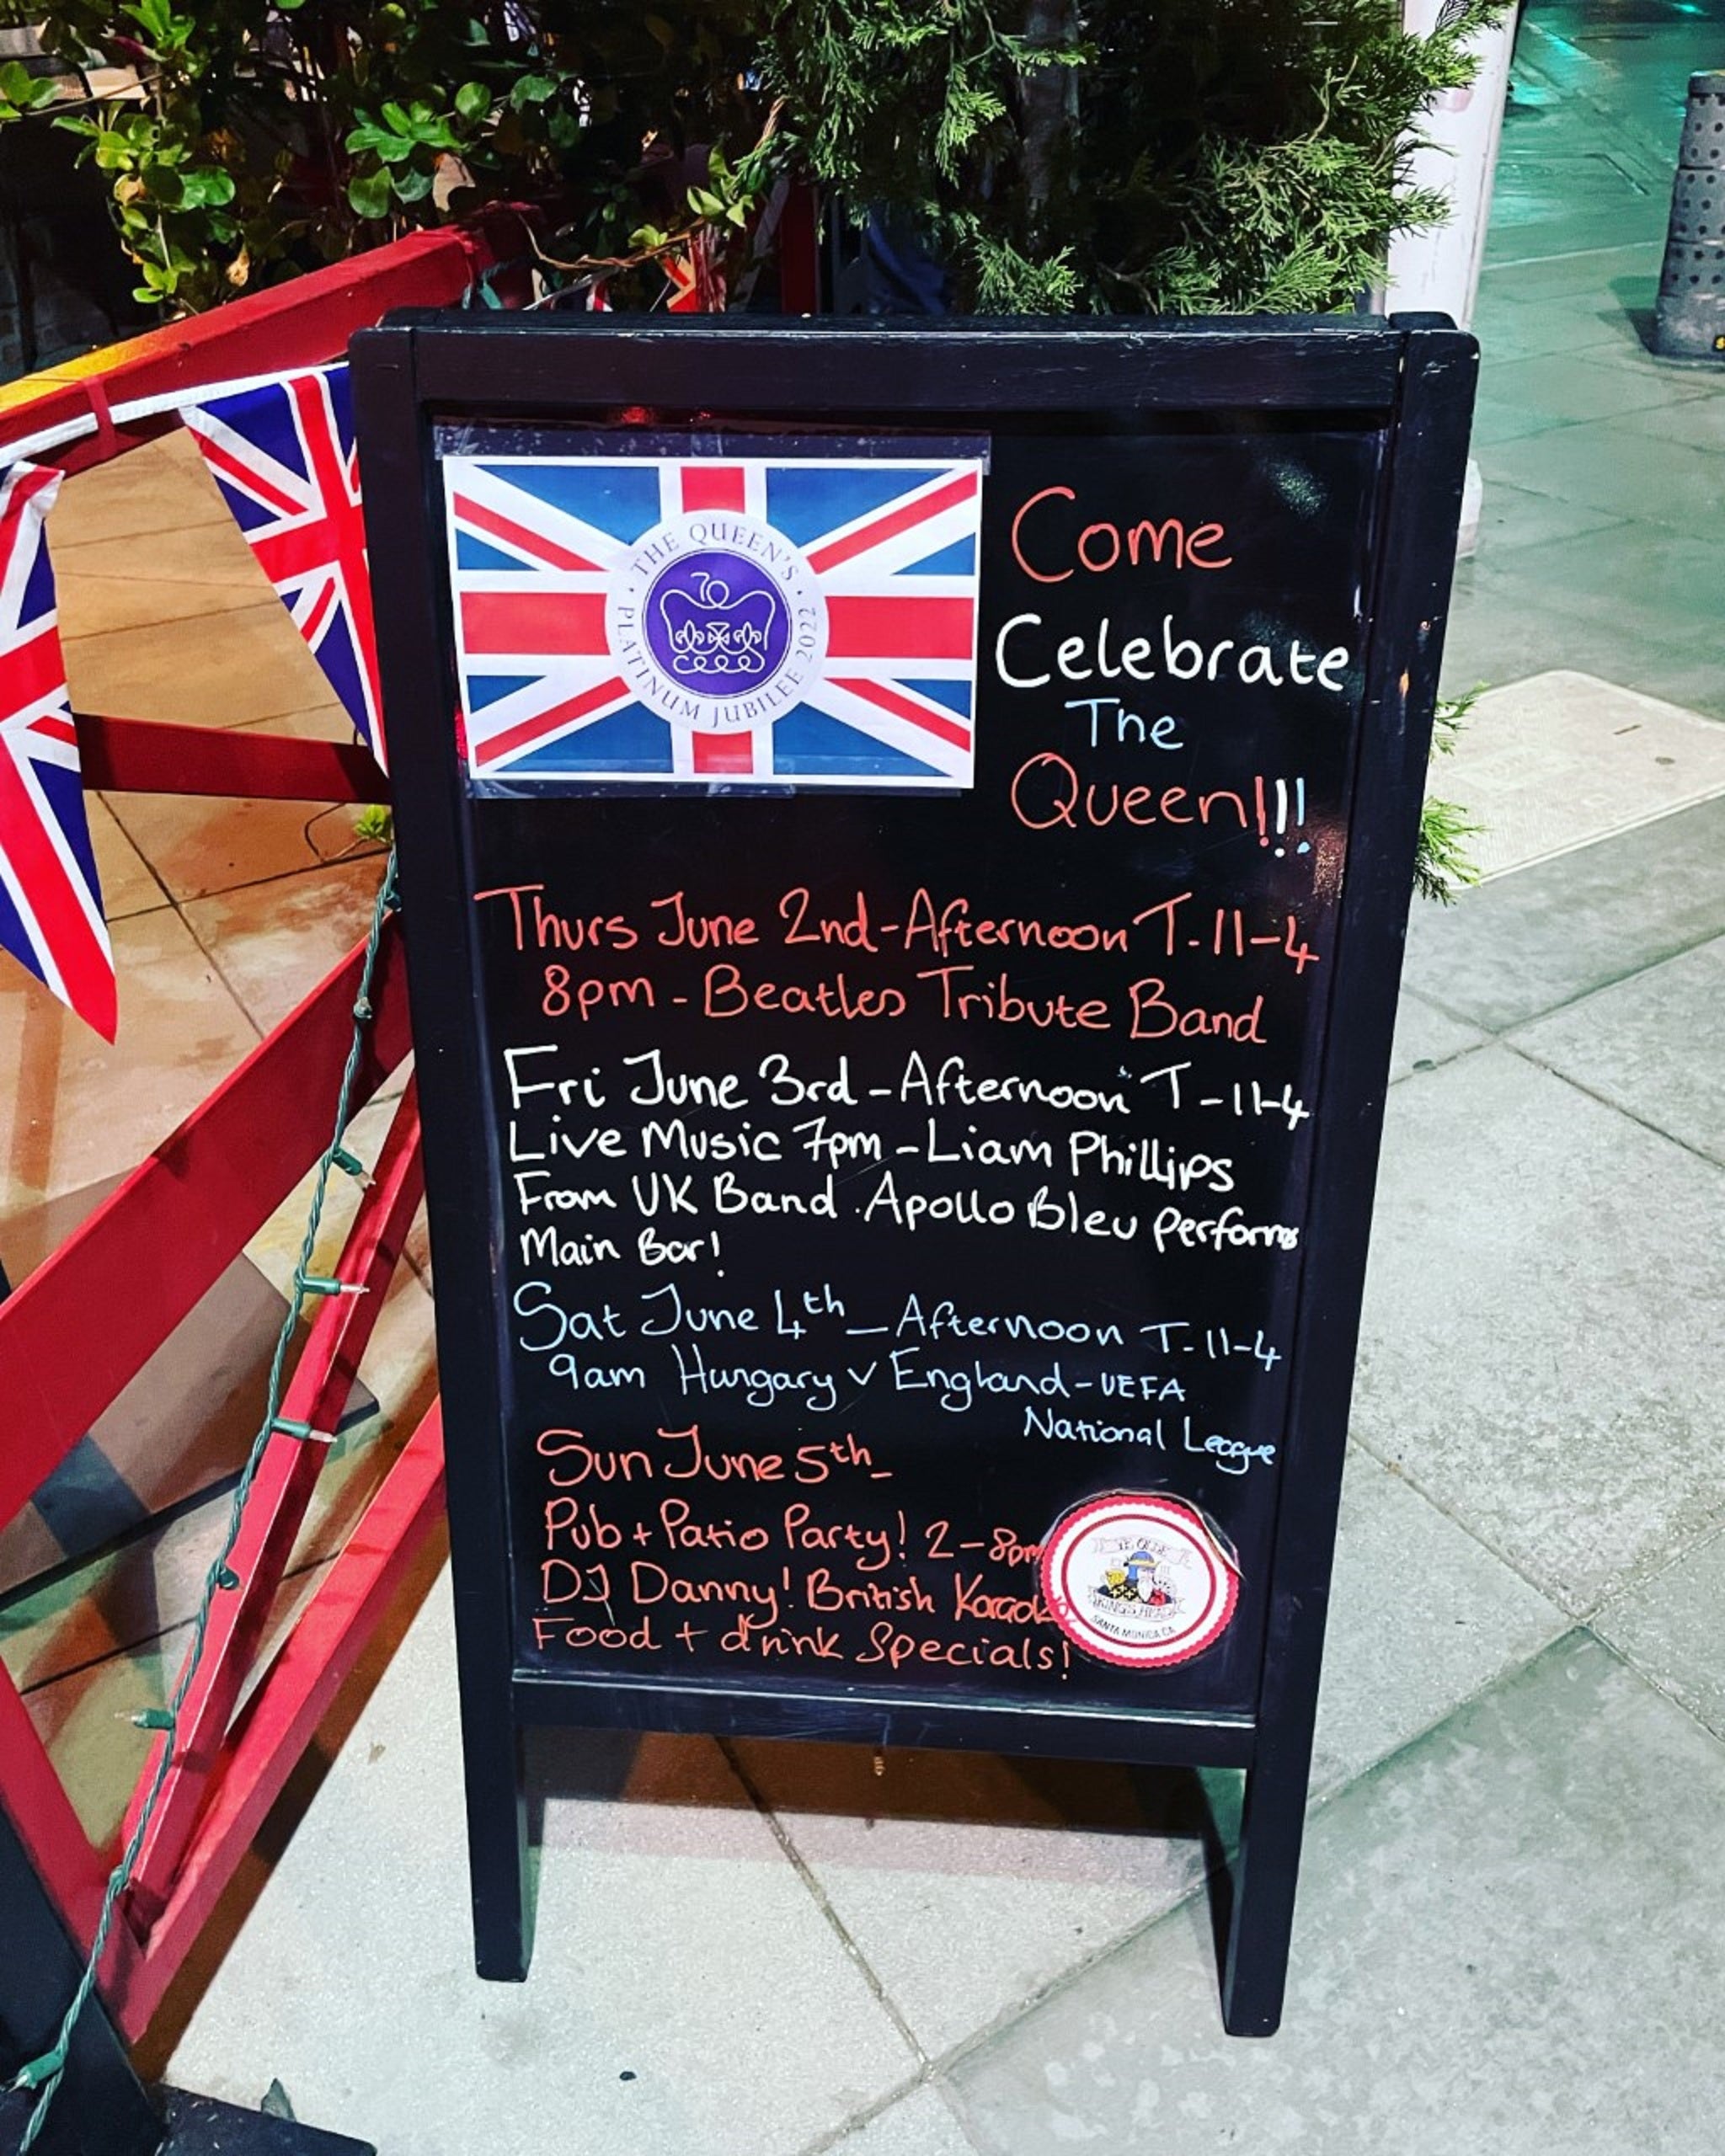 THE QUEEN'S
70
PLATINUM JUBILEE 2022
Come
Celebrate
The
Queen!!!
Thurs June 2nd-Afternoon T-11-4
8pm - Beatles Tribute Band
Fri June 3rd - Afternoon T-11-4
Live Music 7pm - Liam Phillips
From UK Band Apollo Bleu performs
Main Bar!
Sat June 4th - Afternoon T-11-4
9am Hungary v England - UEFA
National League
Sun June 5th -
Pub + Patio Party! 2-8pm
DJ Danny! British Karaok
Food + drink Specials!
YE OLDE
KING'S HEAD
SANTA MONICA CA